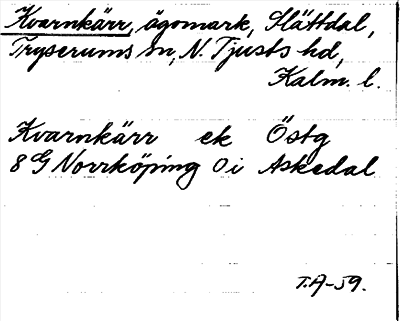 Kvarnkärr, ägomark, Slättdal,
Tryserums sn, N. Tjusts hd,
Kalm. l.
Kvarnkärr ek Östg
8G Norrköping 0i Askedal
T.A-59.